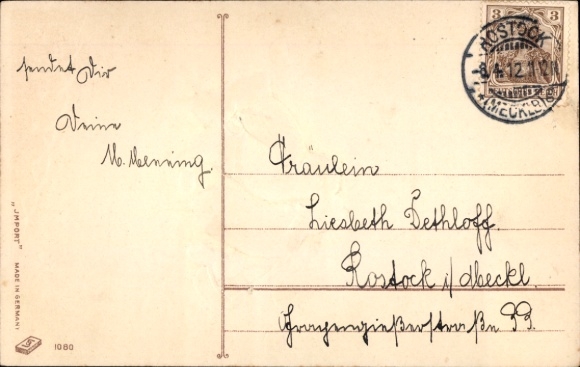 sendet Dir
Deine
M. Menning.
Fräulein
Liesbeth Dethloff
Rostock i/Meckl.
Grapengießerstraße 33.
3
ROSTOCK
8.4.12.11-12V
(MECKLB)
"IMPORT" MADE IN GERMANY
1080